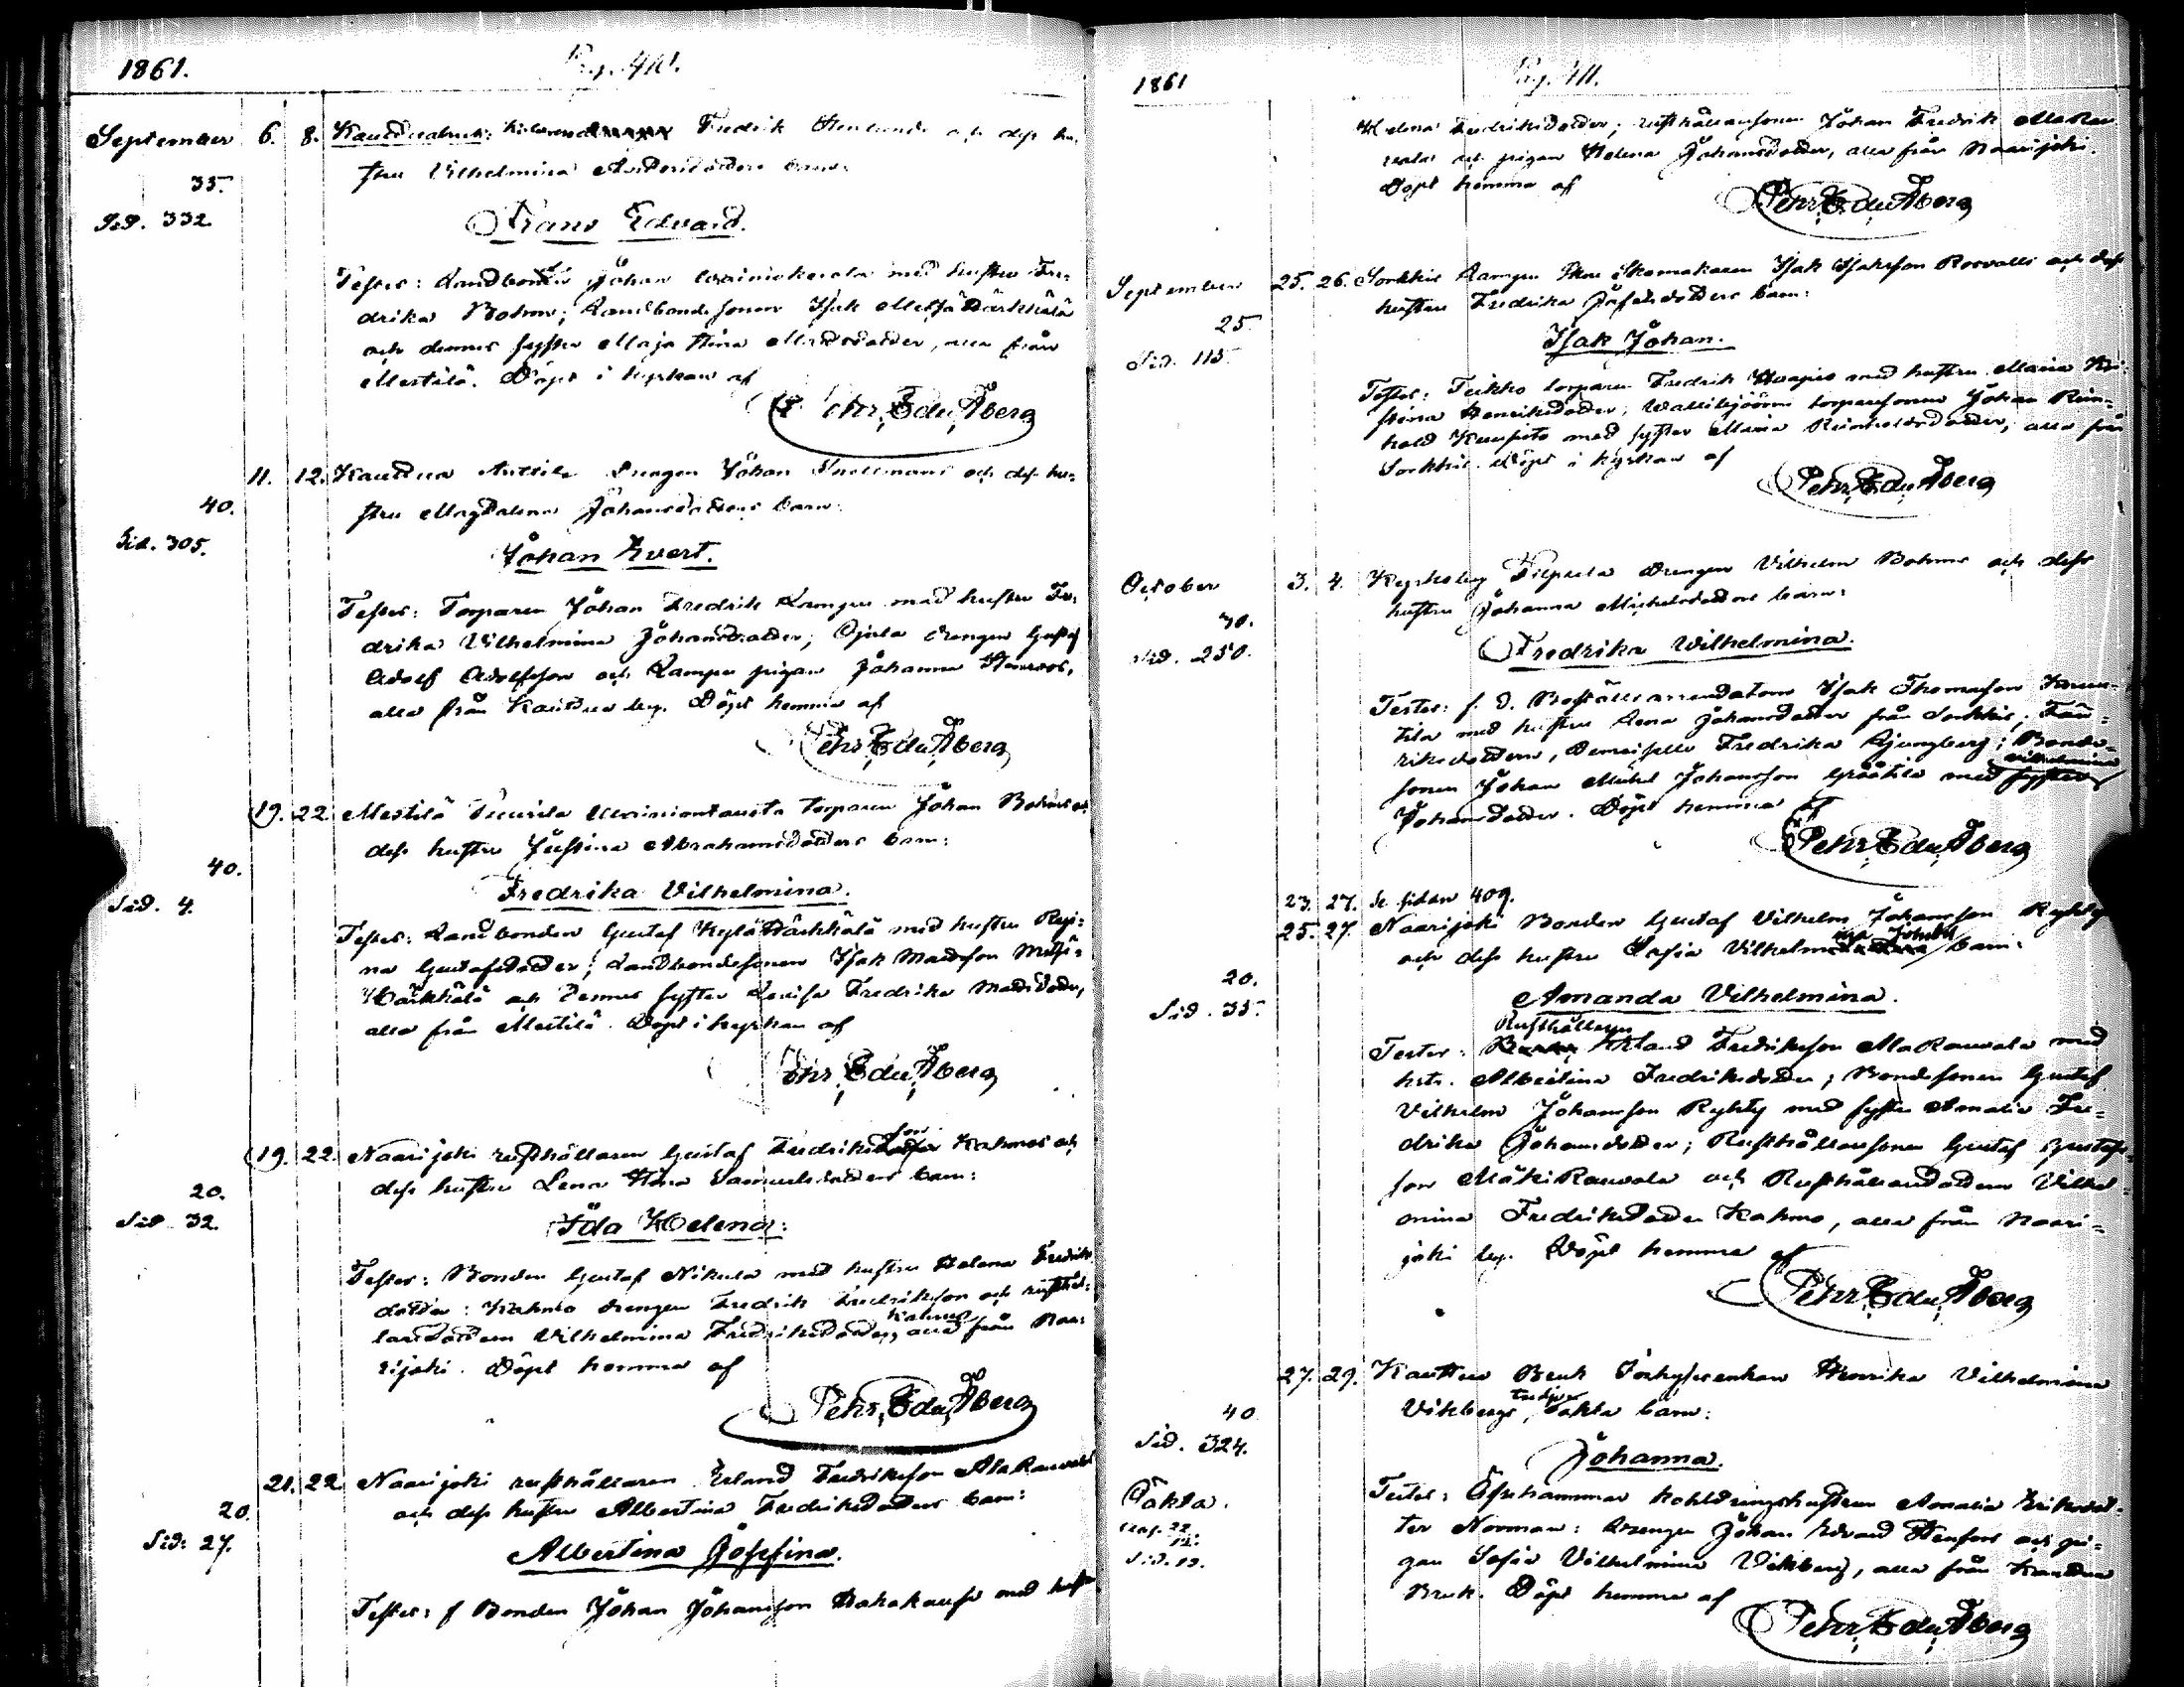 1861. Pag. 410.
September 6. 8. Kauttua bruk: Fredrik och dess hu-
35. stru Vilhelmina barn:
Sid. 332. Frans Edvard.
Testes: Landbonden Johan med hustru Fre-
drika Bohm; Landbondesonen Isak
och dennes syster Maja Stina Madsdotter, alla från
Mestilä. Döpt i kyrkan af
Pehr Edu Åberg
11. 12. Kauttua Anttila Drengen Johan Snellmans och dess hu-
40. stru Magdalena Johansdotters barn:
Sid. 305. Johan Evert.
Testes: Torparen Johan Fredrik Lampu med hustru Fre-
drika Vilhelmina Johansdotter; Ojala drengen Gustaf
Adolf Adolfsson och Lampu pigan Johanna Stenroos,
alla från Kauttua by. Döpt hemma af
Pehr Edu Åberg
19. 22. Mestilä torparen Johan Bohms och
dess hustru Justina Abrahamsdotters barn:
40. Fredrika Vilhelmina.
Sid. 4. Testes: Landbonden Gustaf Kylä Härkkälä med hustru Regi-
na Gustafsdotter; Landbondesonen Isak Madsson Metsä-
Härkkälä och dennes syster Lovisa Fredrika Madsdotter,
alla från Mestilä. Döpt i kyrkan af
Pehr Edu Åberg
19. 22. Naarijoki rusthållaren Gustaf Fredriksson Kahmos och
20. dess hustru Lena Stina Samuelsdotters barn:
Sid. 32. Ida Helena:
Testes: Bonden Gustaf Nikula med hustru Helena Fredriks-
dotter: Kahmo drengen Fredrik Fredriksson och rusthål-
laredottern Vilhelmina Fredriksdotter Kahmo, alla från Naa-
rijoki. Döpt hemma af
Pehr Edu Åberg
21. 22. Naarijoki rusthållaren Erland Fredriksson AlaRauvola
20. och dess hustru Albertina Fredriksdotters barn:
Sid. 27. Albertina Josefina.
Testes: f Bonden Johan Johansson med hust
1861 Pag. 411.
Helena Fredriksdotter; rusthållaresonen Johan Fredrik AlaRau-
vola och pigan Helena Johansdotter, alla från Naarijoki.
Döpt hemma af
Pehr Edu Åberg
September 25. 26. Sorkkis Lampu Skomakaren Isak Isaksson Rosvalls och dess
25. hustru Fredrika Josefsdotters barn:
Sid. 115. Isak Johan.
Testes: Teikko torparen Fredrik med hustru Maria Kri-
stina Henriksdotter; torparesonen Johan Rein-
hold med syster Maria Reinholdsdotter, alla från
Sorkkis. Döpt i kyrkan af
Pehr Edu Åberg
October 3. 4. Kyrkoby Filpula drengen Vilhelm Bohms och dess
30. hustru Johanna Michelsdotters barn:
Sid. 250. Fredrika Wilhelmina.
Testes: f. d. Boställsarrendatorn Isak Thomasson
tila med hustru Lena Johansdotter från Sorkkis; Fän-
riksdottern, Demoiselle Fredrika Ljungberg; Bonde-
sonen Johan Michel Johansson med syster Vilhelmina
Johansdotter. Döpt hemma af
Pehr Edu Åberg
23. 27. Se sidan 409.
25. 27. Naarijoki Bonden Gustaf Vilhelm Johansson Ryhty
och dess hustru Sofia Vilhelmina barn:
20. Amanda Vilhelmina.
Sid. 35. Testes: Rusthållaren Erland Fredriksson AlaRauvola med
hstr. Albertina Fredriksdotter; Bondesonen Gustaf
Vilhelm Johansson Ryhty med syster Amalia Fre-
drika Johansdotter; Rusthållaresonen Gustaf Gustafs-
son MäkiRauvola och Rusthållaredottern Vilhel-
mina Fredriksdotter Kahmo, alla från Naari-
joki by. Döpt hemma af
Pehr Edu Åberg
27. 29. Kauttua Bruk Inhyseenkan Henrika Vilhelmina
40. Vikbergs, tredje oäkta barn:
Sid. 324. Johanna.
Oäkta. Testes: Åfvahammar kohldrengshustrun Amalia Eriksdot-
ter Norrman: drengen Johan Edvard Stenfors och pi-
Sid. 12. gan Sofia Vilhelmina Vikberg, alla från Kauttua
Bruk. Döpt hemma af
Pehr Edu Åberg